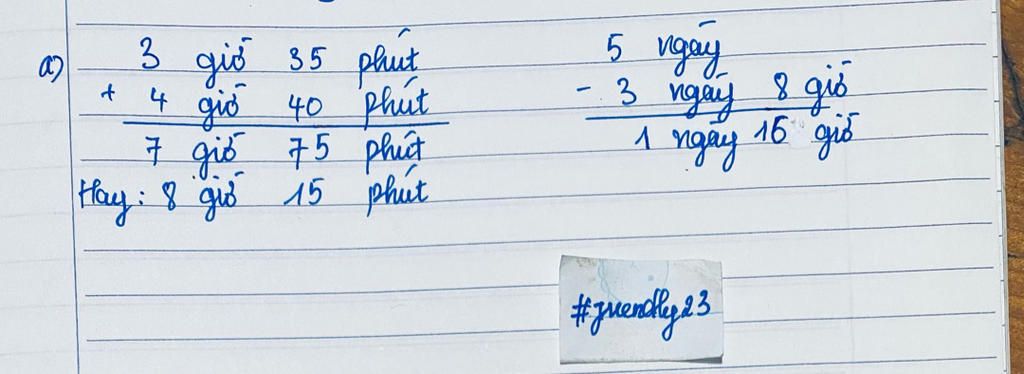 a) 3 giờ 35 phút
+ 4 giờ 40 phút
7 giờ 75 phút
Hay: 8 giờ 15 phút
5 ngày
- 3 ngày 8 giờ
1 ngày 16 giờ